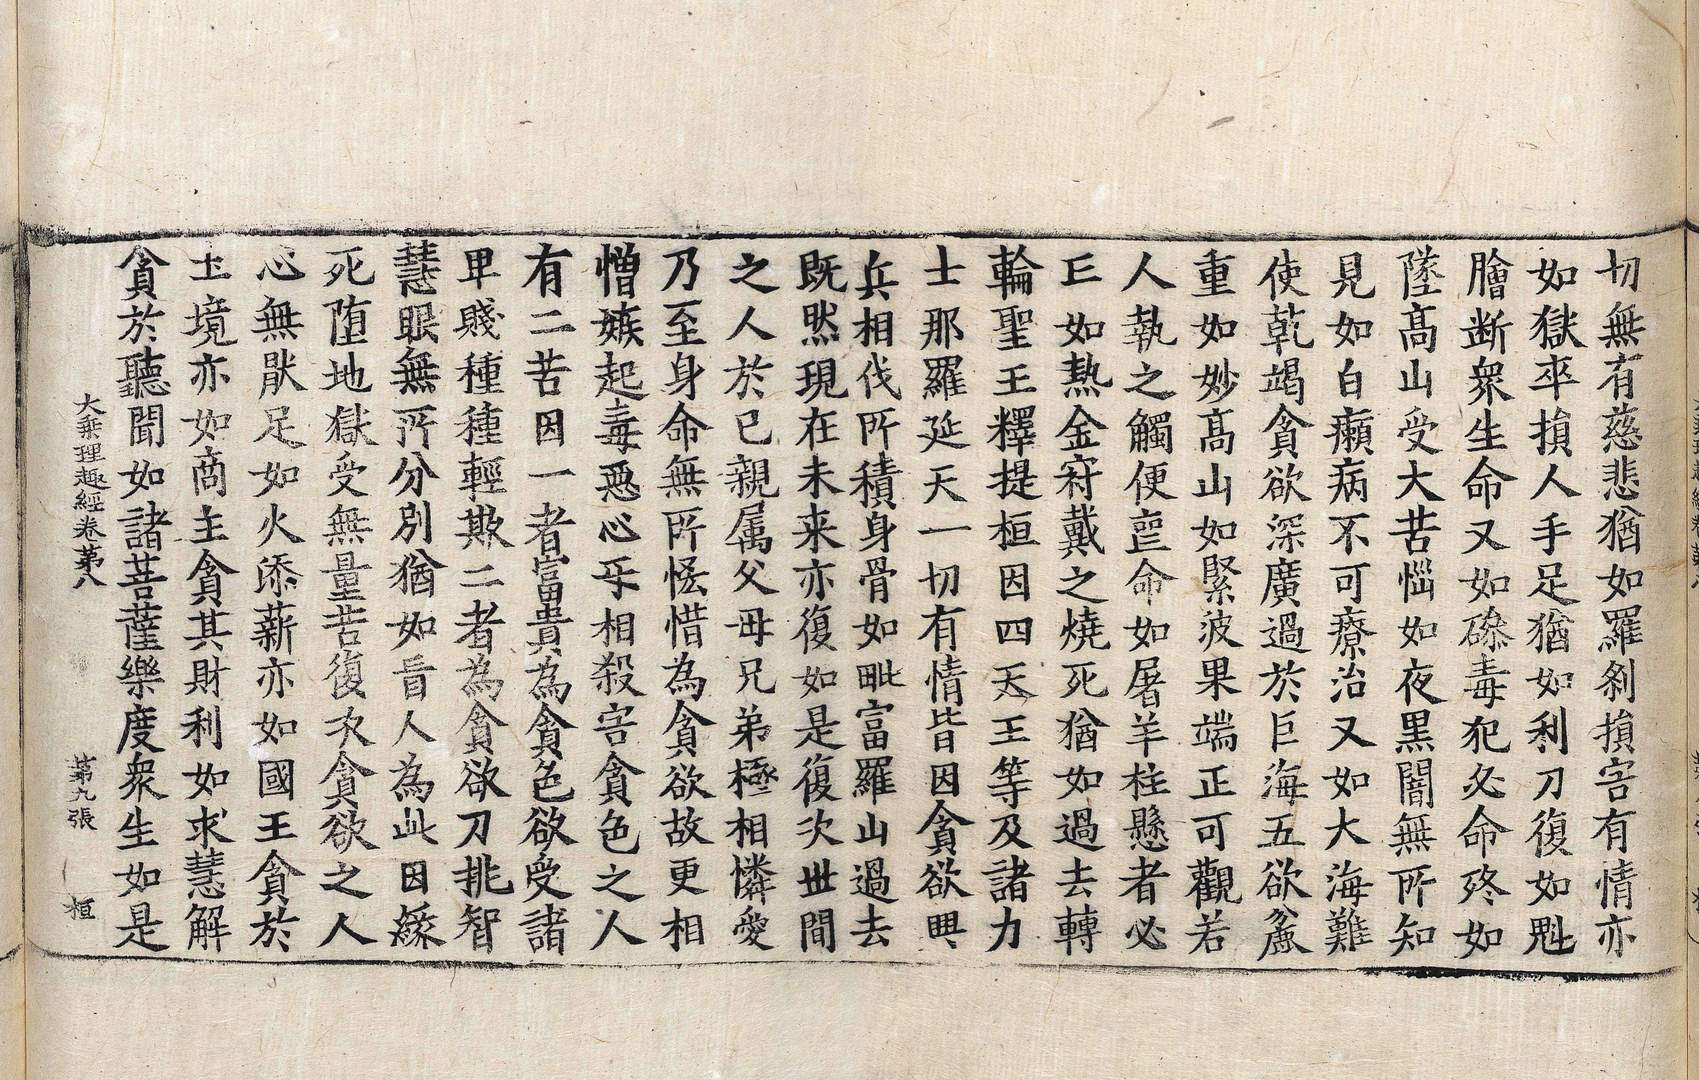 切無有慈悲猶如羅刹損害有情亦
如獄卒損人手足猶如利刀復如魁
膾断衆生命又如磣毒犯必命終如
墜髙山受大苦惱如夜黒闇無所知
見如白癩病不可療治又如大海難
使乾竭貪欲深廣過於巨海五欲麁
重如妙髙山如緊波果端正可觀若
人執之觸便喪命如屠羊柱懸者必
亡如熱金冠戴之燒死猶如過去轉
輪聖王釋提桓因四天王等及諸力
士那羅延天一切有情皆因貪欲興
兵相伐所積身骨如毗富羅山過去
既然現在未来亦復如是復次世間
之人於已親属父母兄弟極相憐愛
乃至身命無所悋惜為貪欲故更相
憎嫉起毒惡心乎相殺害貪色之人
有二苦因一者富貴為貪色欲受諸
卑賤種種輕欺二者為貪欲刀挑智
慧眼無所分別猶如盲人為此因緣
死堕地獄受無量苦復次貪欲之人
心無猒足如火添薪亦如國王貪於
土境亦如商主貪其財利如求慧解
貪於聽聞如諸菩薩樂度衆生如是
大乘理趣經卷第八 第九張 桓